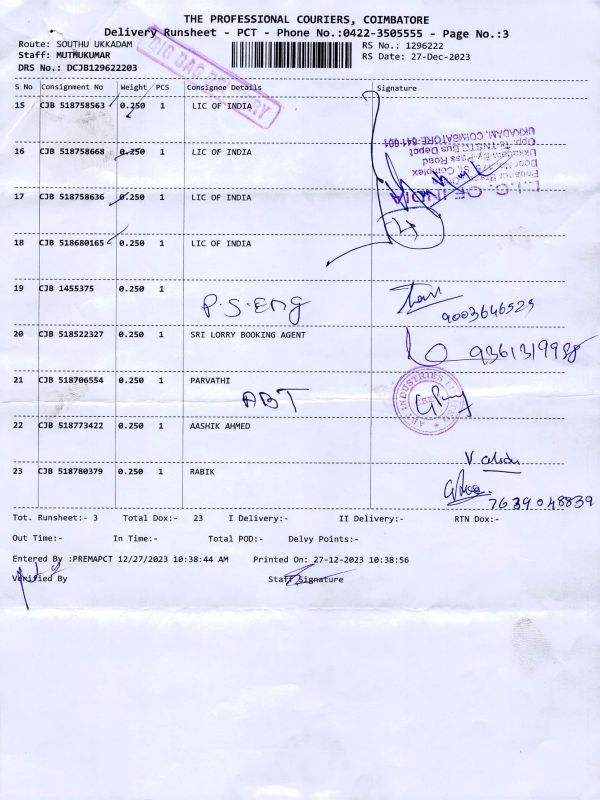 THE PROFESSIONAL COURIERS, COIMBATORE
Delivery Runsheet - PCT - Phone No.:0422-3505555 - Page No.:3
Route: SOUTHU UKKADAM
RS No.: 1296222
Staff: MUTHUKUMAR
RS Date: 27-Dec-2023
DRS No.: DCJB129622203
BIG BAG DELIVERY
S No Consignment No Weight PCS Consignee Details Signature
15 CJB 518758563 0.250 1 LIC OF INDIA
16 CJB 518758668 0.250 1 LIC OF INDIA
17 CJB 518758636 0.250 1 LIC OF INDIA
18 CJB 518680165 0.250 1 LIC OF INDIA
L.I.C. OF INDIA
Complex
Ukkadam By-Pass Road
Opp. to TNSTC Bus Depot
UKKADAM, COIMBATORE-641 001
19 CJB 1455375 0.250 1
P.S.Eng
9003646529
20 CJB 518522327 0.250 1 SRI LORRY BOOKING AGENT
21 CJB 518706554 0.250 1 PARVATHI
ABT
ABT INDUSTRIES LIMITED
22 CJB 518773422 0.250 1 AASHIK AHMED
23 CJB 518780379 0.250 1 RABIK
7639048839
Tot. Runsheet:- 3 Total Dox:- 23 I Delivery:- II Delivery:- RTN Dox:-
Out Time:- In Time:- Total POD:- Delvy Points:-
Entered By :PREMAPCT 12/27/2023 10:38:44 AM Printed On: 27-12-2023 10:38:56
Verified By Staff Signature